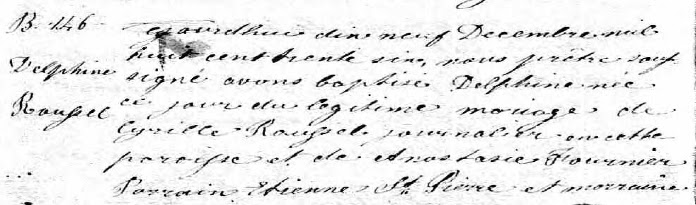 B. 146
Delphine
Roussel
ajourdhui dix neuf Decembre mil
huit cent trente six, nous prêtre sous
signé avons baptisé Delphine née
ce jour du legitime mariage de
Cyrille Roussel journalier en cette
paroisse et de Anastasie Fournier
Parrain Etienne St. Pierre et marraine